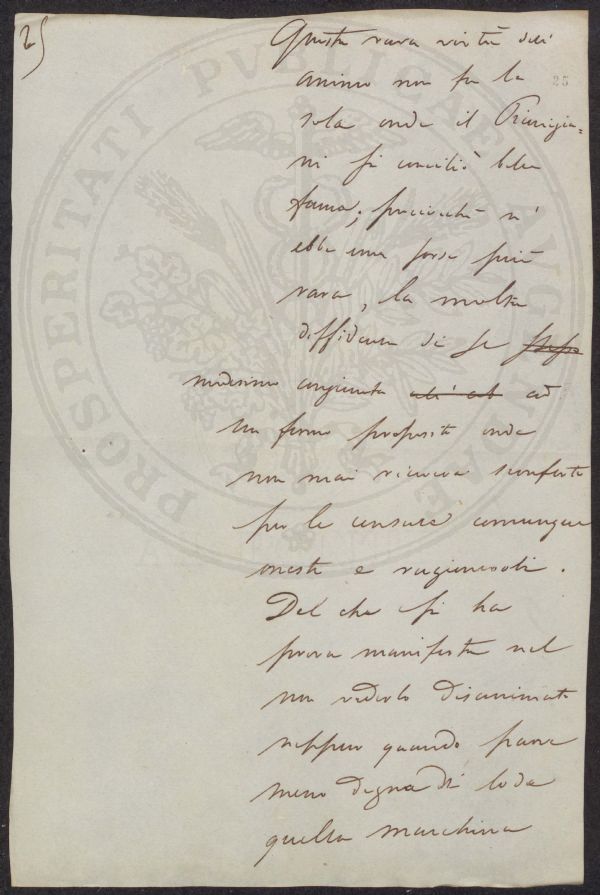 25
Questa rara virtù dell'
25
animo non fu la
sola onde il Piangia=
ni si conciliò bella
fama; perciocchè n'
ebbe una forse più
rara, la molta
diffidenza di se stesso
medesimo congiunta ad
un fermo proposito onde
non mai riceveva sconforto
per le censure comunque
oneste e ragionevoli.
Del che si ha
prova manifesta nel
non vederlo disanimato
neppur quando parve
meno degna di lode
quella macchina
PROSPERITATI PVBLICAE AVGENDAE